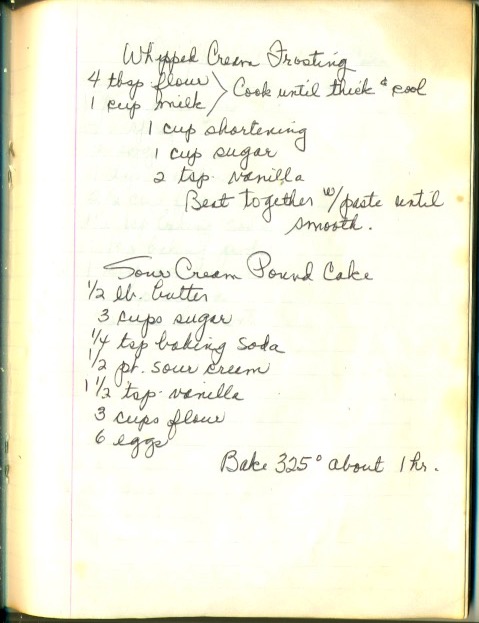 Whipped Cream Frosting
4 tbsp flour
1 cup milk } Cook until thick & cool
1 cup shortening
1 cup sugar
2 tsp. vanilla
Beat together w/paste until
smooth.
Sour Cream Pound Cake
1/2 lb. butter
3 cups sugar
1/4 tsp baking soda
1/2 pt. sour cream
1 1/2 tsp. vanilla
3 cups flour
6 eggs
Bake 325° about 1 hr.